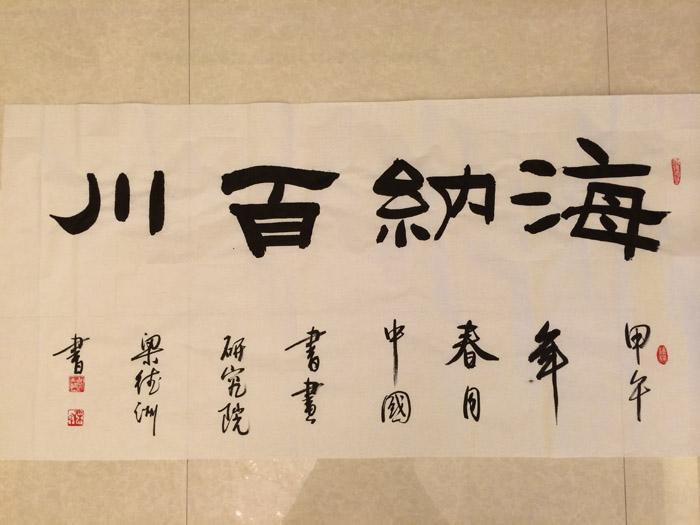 海納百川
甲午
年
春月
中國
書畫
研究院
梁德洲
書